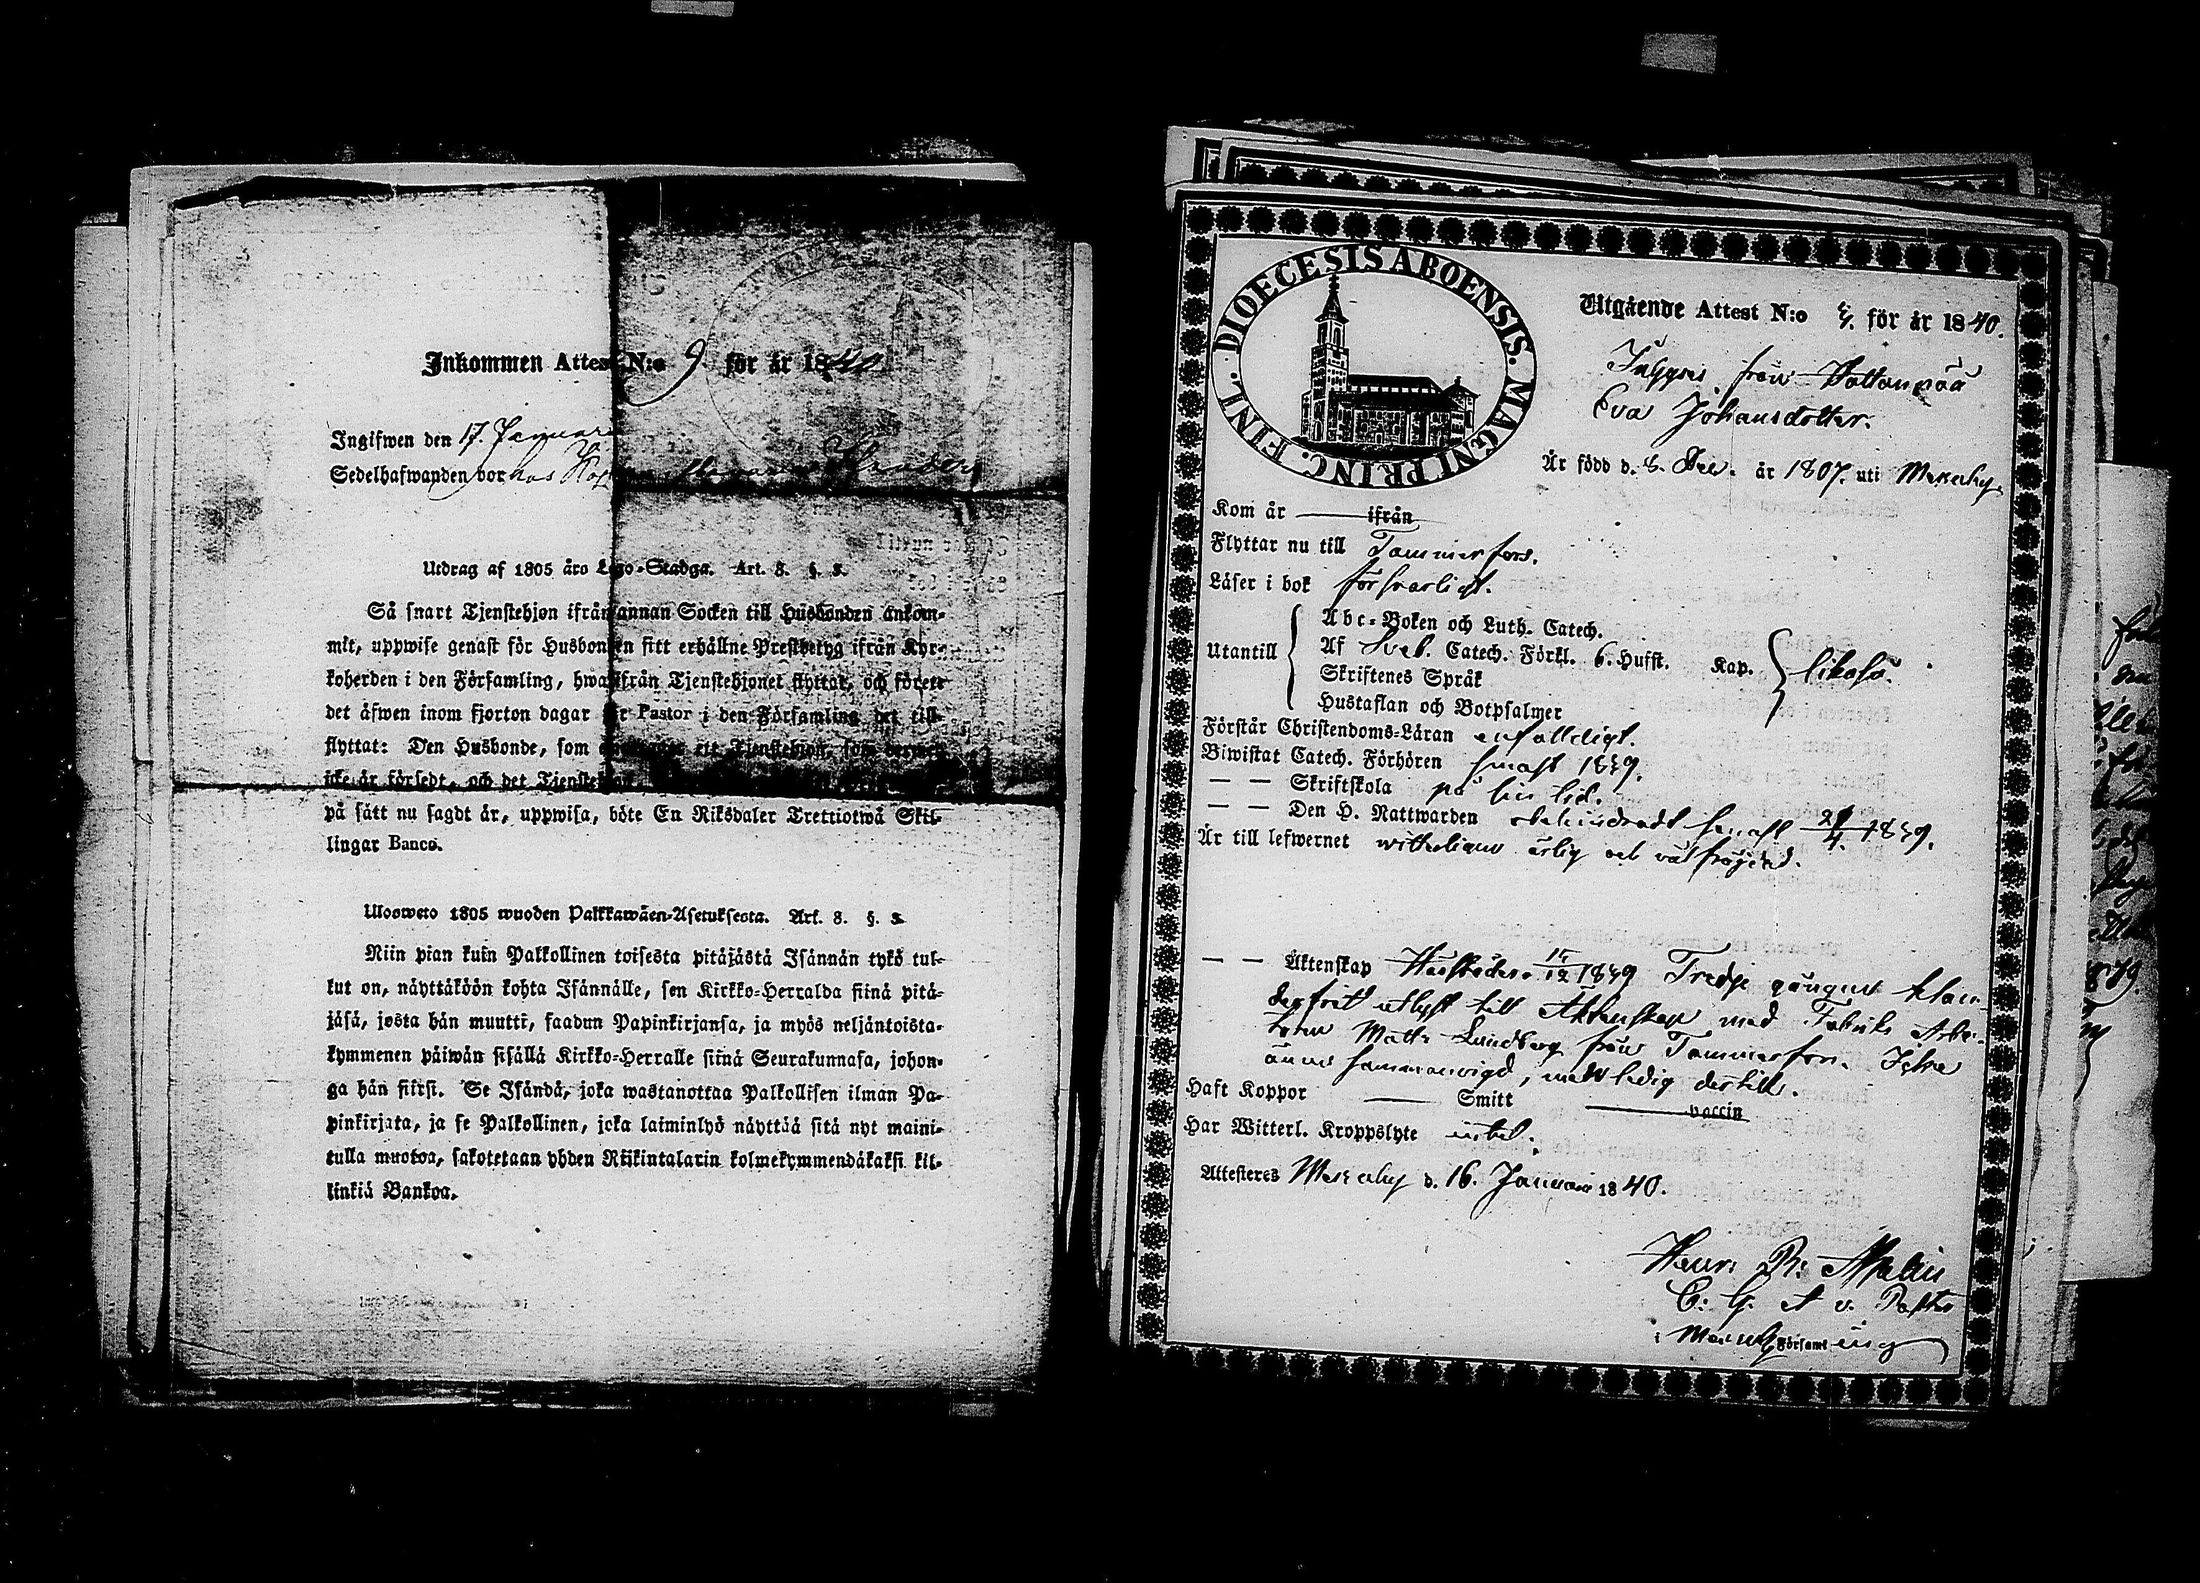 Inkommen Attest N:o 9 för år 1840
Ingifwen den 17. Januari
Sedelhafwanden bor hos
Utdrag af 1805 års Lego-Stadga. Art. 8. §. 3.
Så snart Tjenstehjon ifrån annan Socken till Husbonden ankom-
mit, uppwise genast för Husbonden sitt erhållne Prestbetyg ifrån Kyr-
koherden i den Församling, hwarifrån Tjenstehjonet flyttat, och förete
det äfwen inom fjorton dagar för Pastor i den Församling det till-
flyttat: Den Husbonde, som ett Tjenstehjon, som dermed
icke är försedt, och det Tjenstehjon
på sätt nu sagdt är, uppwisa, böte En Riksdaler Trettiotwå Skil-
lingar Banco.
Ulosweto 1805 wuoden Palkkawäen-Asetuksesta. Art. 8. §. 3.
Niin pian kuin Palkollinen toisesta pitäjästä Isännän tykö tul-
lut on, näyttäköön kohta Isännälle, sen Kirkko-Herralda siinä pitä-
jäsä, josta hän muutti, saadun Papinkirjansa, ja myös neljäntoista-
kymmenen päiwän sisällä Kirkko-Herralle siinä Seurakunnasa, johon-
ga hän siirsi. Se Isändä, joka wastanottaa Palkollisen ilman Pa-
pinkirjata, ja se Palkollinen, joka laiminlyö näyttää sitä nyt maini-
tulla muotoa, sakotetaan yhden Riikintalarin kolmekymmendäkaksi kil-
linkiä Bankoa.
DIOECESIS ABOENSIS. MAGNI PRINC. FINL.
Utgående Attest N:o för år 1840.
från
Eva Johansdotter.
Är född d. 8. Dec. år 1807. uti Messuby.
Kom år — ifrån
Flyttar nu till Tammerfors.
Läser i bok försvarligt.
Utantill
Abc-Boken och Luth. Catech.
Af Sveb. Catech. Förkl. 6. Hufst. Kap.
Skriftenes Språk
Hustaflan och Botpsalmer
likaså.
Förstår Christendoms-Läran enfalldigt.
Biwistat Catech. Förhören senast 1839.
— — Skriftskola på sin tid.
— — Den H. Nattwarden obehindradt senast 1839.
Är till lefwernet witterligen ärlig och välfräjdad.
— — Äktenskap 1839 Tredje gången klan-
derfritt utlyst till Äktenskap med Fabriks Arbe-
taren Matts Lundberg från Tammerfors. Icke
ännu sammanvigd, men ledig dertill.
Haft Koppor — Smitt — vaccin
Har Witterl. Kroppslyte intet.
Attesteres Messuby d. 16. Januari 1840.
Henr:
i Messuby Församling